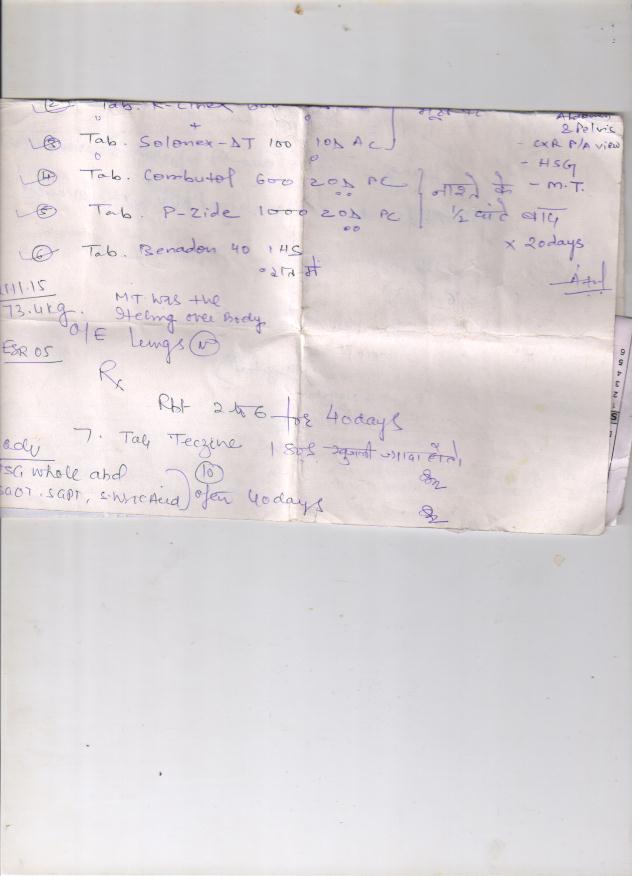 ② Tab. R-Cinex 600
Abdomen
& Pelvis
③ Tab. Solonex-DT 100 1OD AC
- CXR P/A view
- HSG
④ Tab. Combutol 600 2OD PC
नाश्ते के
- M.T.
⑤ Tab. P-Zide 1000 2OD PC
1/2 घंटे बाद
x 20days
⑥ Tab. Benadon 40 1HS
रात में
.11.15
73.4kg.
MT was +ve
Itching over Body
O/E Lungs N
ESR 05
Rx
Rpt 2 to 6 for 40days
7. Tab Teczine 1 SOS खुजली ज्यादा होतो
10
adv
USG whole abd
SGOT. SGPT, S. Uric Acid
after 40days